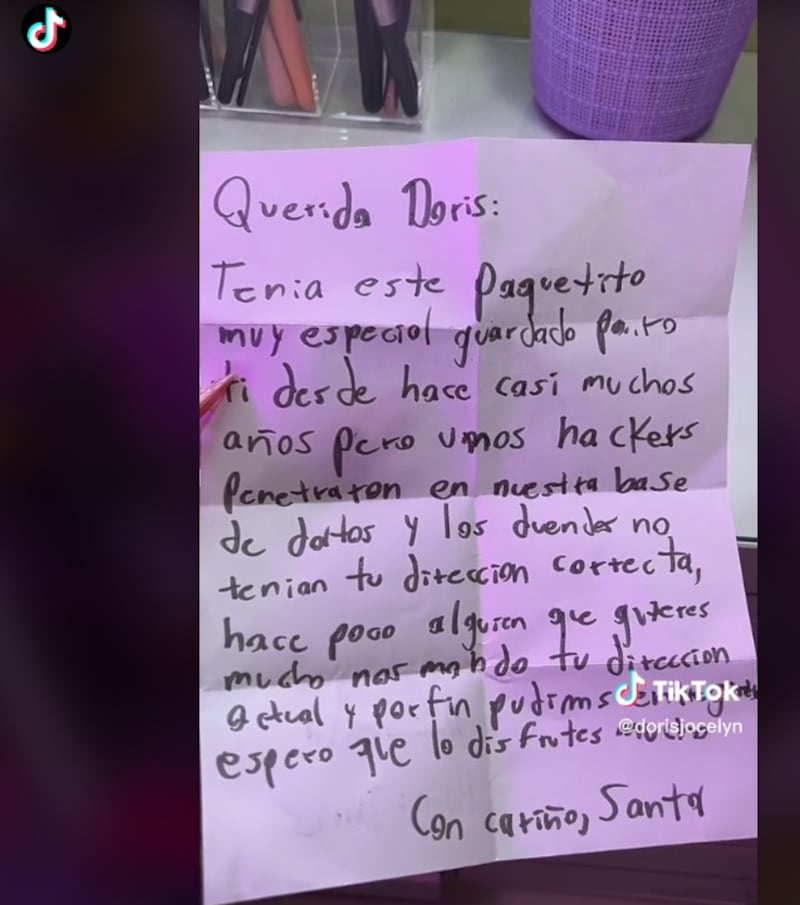 Querida Doris:
Tenia este Paquetito
muy especial guardado para
ti desde hace casi muchos
años pero unos hackers
Penetraron en nuestra base
de datos y los duendes no
tenian tu direccion correcta,
hace poco alguien que quieres
mucho nos mando tu direccion
actual y por fin pudimos
espero que lo disfrutes mucho
Con cariño, Santa
TikTok
@dorisjocelyn